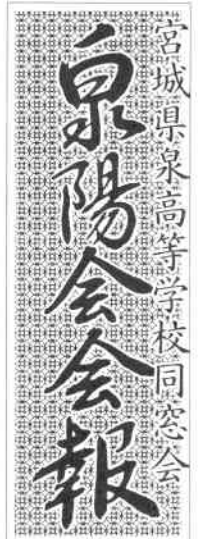 宮城県泉高等学校同窓会
泉陽会会報